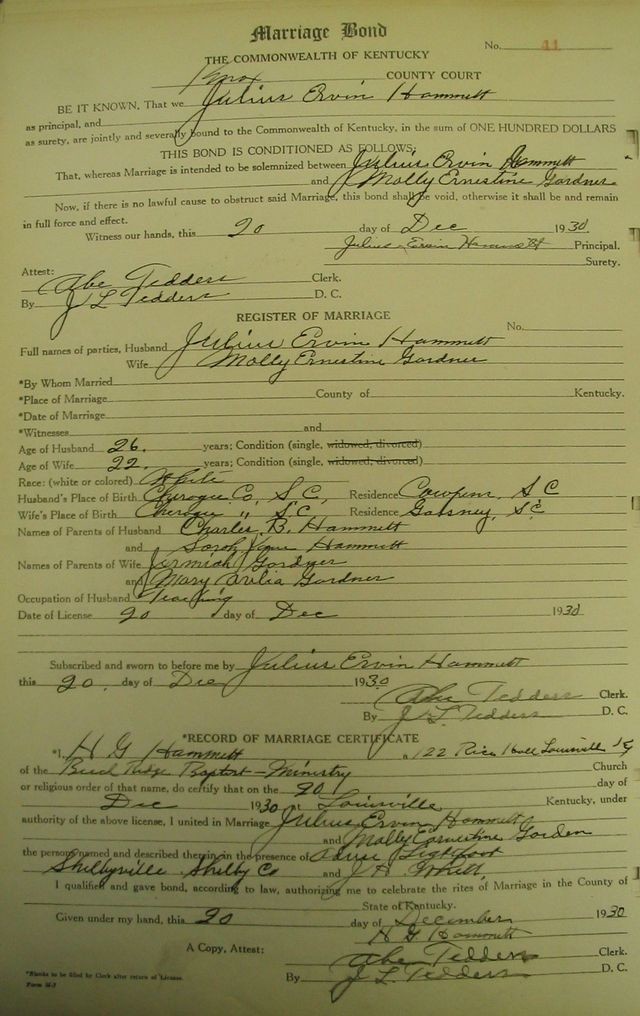 Marriage Bond
No. 41
THE COMMONWEALTH OF KENTUCKY
Knox COUNTY COURT
BE IT KNOWN, That we Julius Ervin Hammett
as principal, and
as surety, are jointly and severally bound to the Commonwealth of Kentucky, in the sum of ONE HUNDRED DOLLARS
THIS BOND IS CONDITIONED AS FOLLOWS:
That, whereas Marriage is intended to be solemnized between Julius Ervin Hammett
and Molly Ernestine Gardner
Now, if there is no lawful cause to obstruct said Marriage, this bond shall be void, otherwise it shall be and remain
in full force and effect.
Witness our hands, this 20 day of Dec 1930.
Julius Ervin Hammett Principal.
Surety.
Attest:
Abe Tedders Clerk.
By J L Tedders D. C.
REGISTER OF MARRIAGE
No.
Full names of parties, Husband Julius Ervin Hammett
Wife Molly Ernestine Gardner
*By Whom Married
*Place of Marriage County of Kentucky.
*Date of Marriage
*Witnesses and
Age of Husband 26. years; Condition (single, widowed, divorced)
Age of Wife 22. years; Condition (single, widowed, divorced)
Race: (white or colored) White
Husband's Place of Birth Cherogee Co, S.C, Residence Cowpens, S C
Wife's Place of Birth Cherogee " S.C. Residence Gafsney, S.C.
Names of Parents of Husband Charles B. Hammett
and Sarah Hammett
Names of Parents of Wife Jermiah Gardner
and Mary Gardner
Occupation of Husband Teaching
Date of License 20 day of Dec 1930
Subscribed and sworn to before me by Julius Ervin Hammett
this 20. day of Dec 1930
Abe Tedders Clerk.
By J L Tedders D. C.
*RECORD OF MARRIAGE CERTIFICATE
*I, H G Hammett, 122 Rice Hall Louisville Ky
of the Beech Ridge Baptist - Ministry Church
or religious order of that name, do certify that on the 20 day of
Dec 1930 at Louisville Kentucky, under
authority of the above license, I united in Marriage Julius Ervin Hammett
and Molly Ernestine Gorden
the persons named and described therein in the presence of Lightfoot
and J. H.
Shelbyville Shelby Co
I qualified and gave bond, according to law, authorizing me to celebrate the rites of Marriage in the County of
State of Kentucky.
Given under my hand, this 20 day of December 1930
H G Hammett
A Copy, Attest: Abe Tedders Clerk.
By J L Tedders D. C.
*Blanks to be filled by Clerk after return of License.